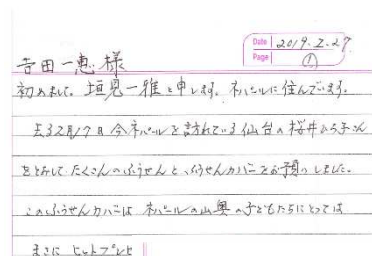 Date 2019.2.27
Page ①
吉田一恵様
初めまして、垣見一雅と申します。ネパールに住んでいます。
去る2月17日今ネパールを訪れている仙台の桜井ひろ子さん
をとおして たくさんのふうせんと、ふうせんカバーをお預りしました。
このふうせんカバーは ネパールの山奥の子どもたちにとっては
まさに ヒットプレゼ